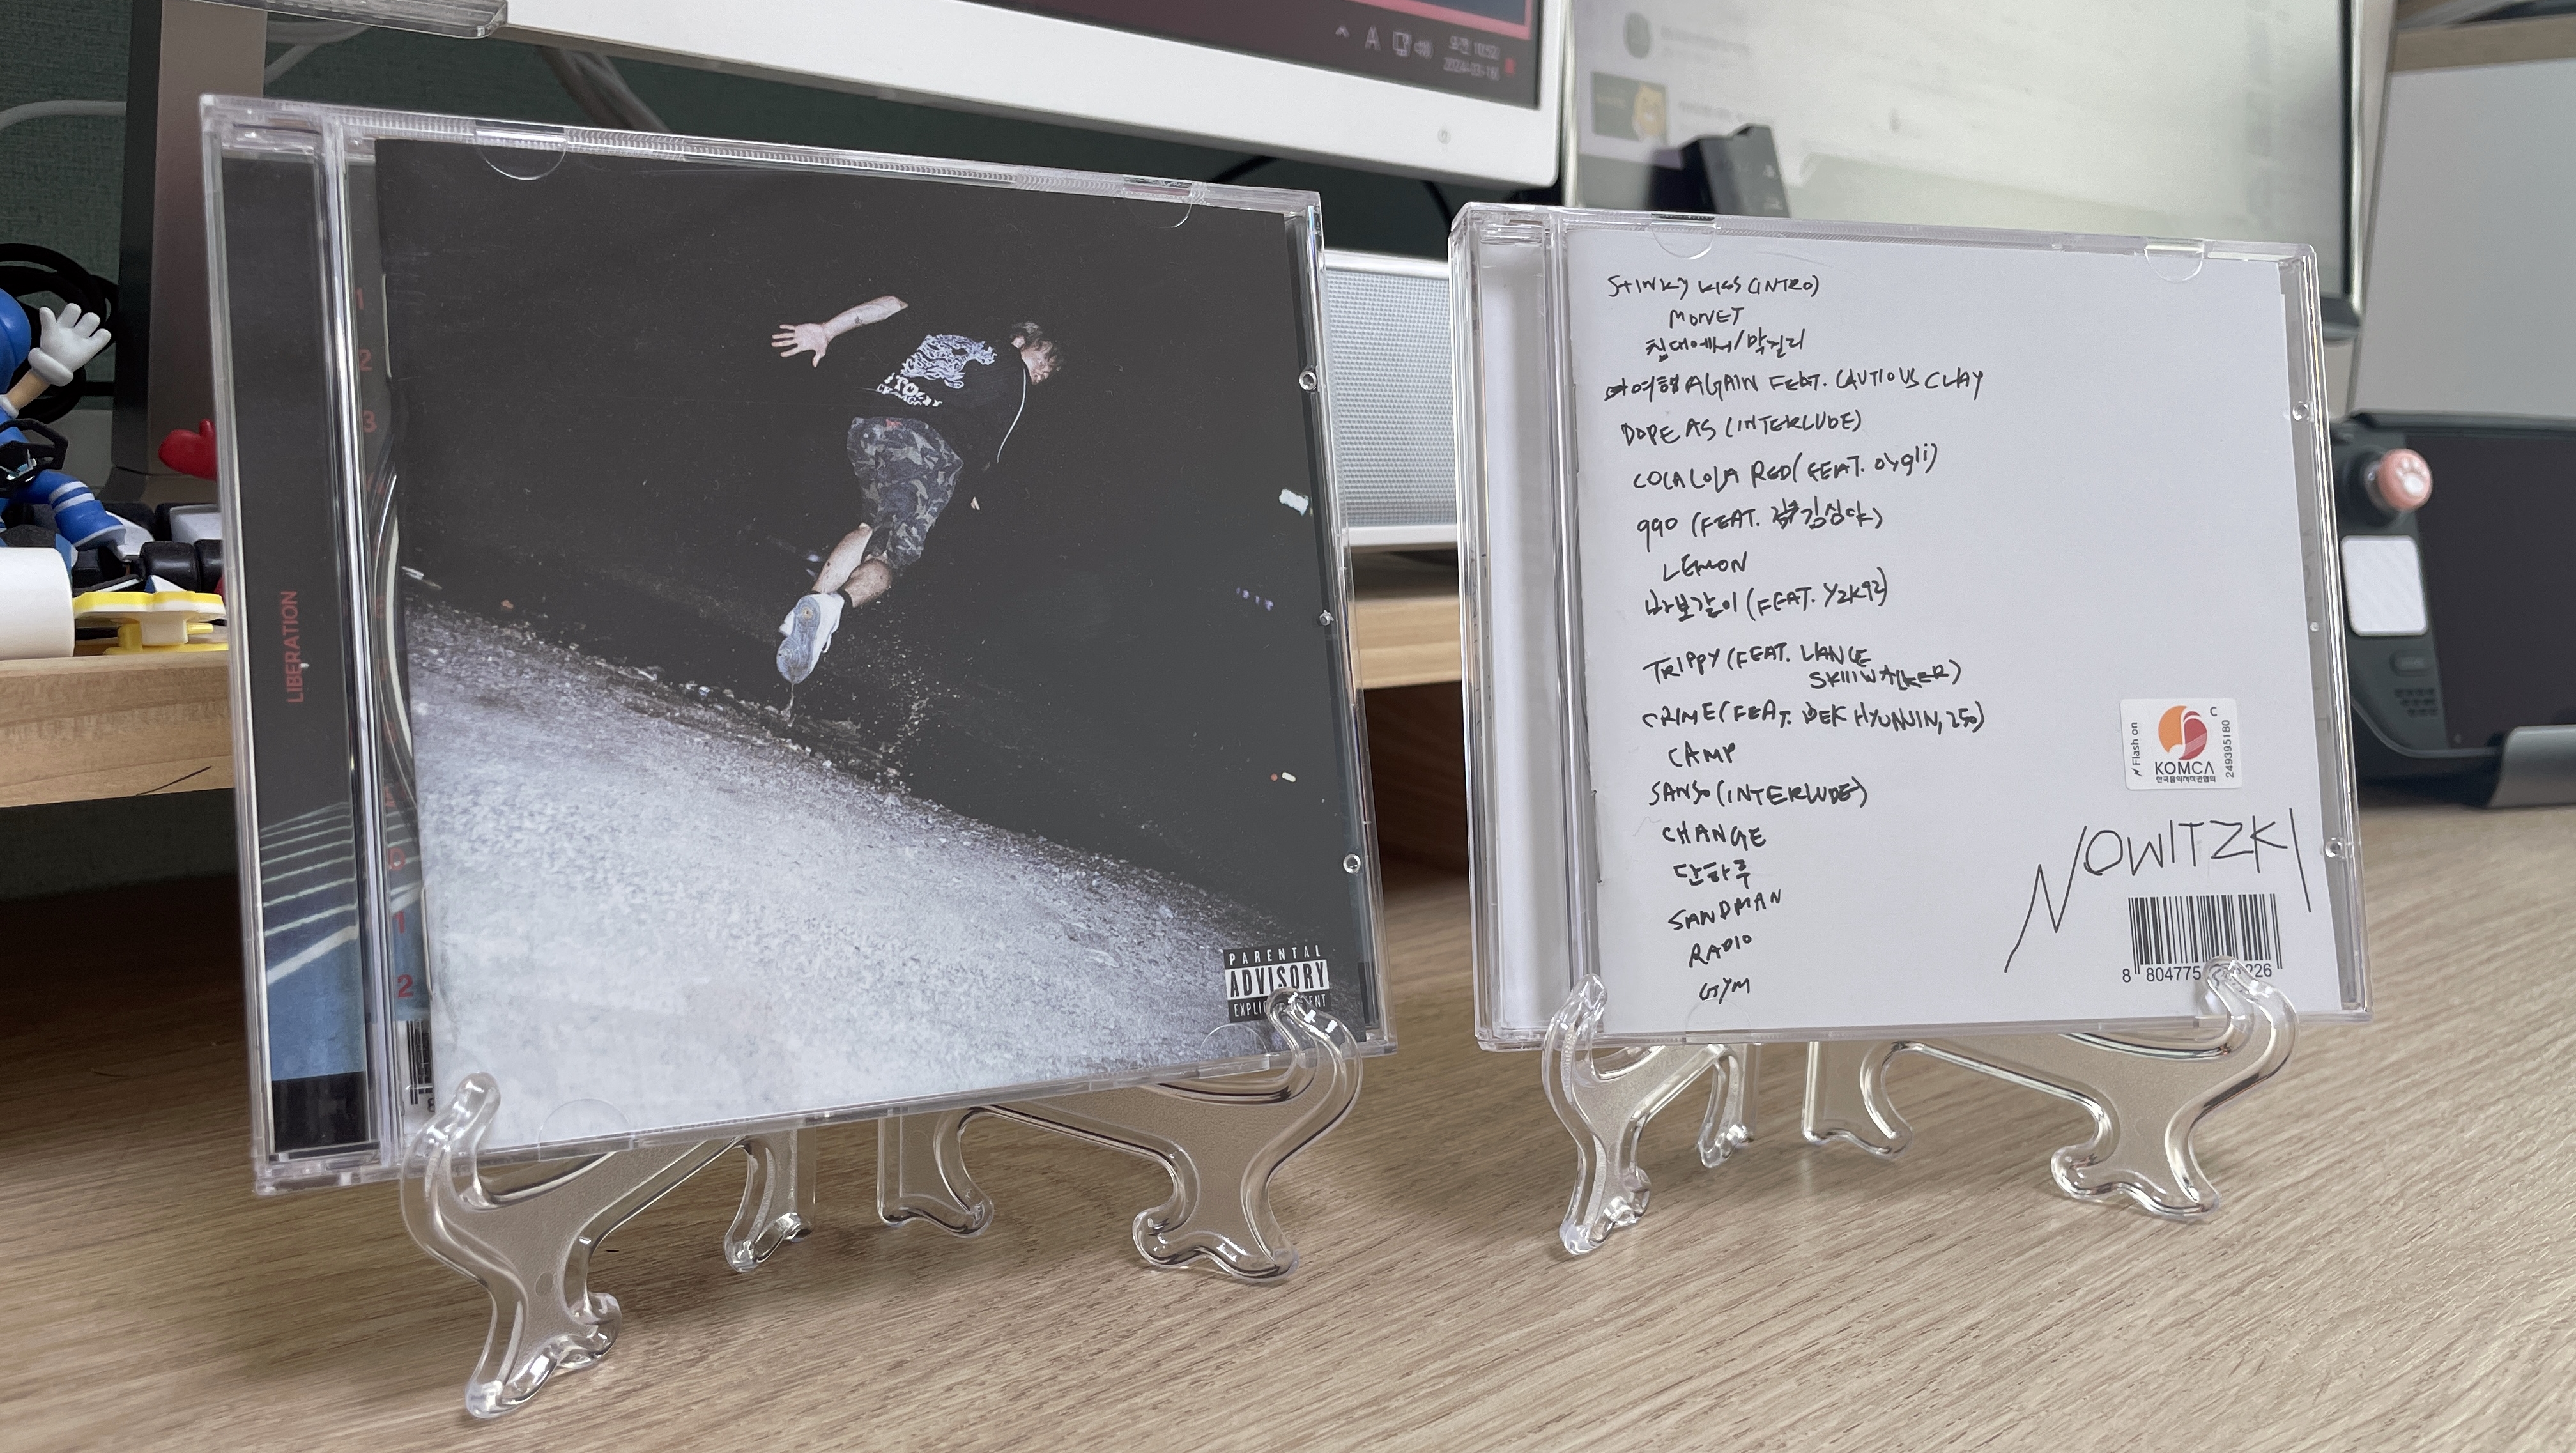 A
LIBERATION
1
2
3
1
2
PARENTAL
ADVISORY
STINKY KISS (INTRO)
MONET
침대에서/막걸리
여행 AGAIN FEAT. CAUTIOUS CLAY
DOPE AS (INTERLUDE)
COCA COLA RED (FEAT. oygli)
990 (FEAT. 김심야)
LEMON
바보같이 (FEAT. Y2K92)
TRIPPY (FEAT. LIANCE
SKIIIWALKER)
CRIME (FEAT. BEK HYUNJIN, 250)
CAMP
SANSO (INTERLUDE)
CHANGE
단하루
SANDMAN
RADIO
GYM
Flash on
C
KOMCA
한국음악저작권협회
249395180
NOWITZKI
8 804775 226